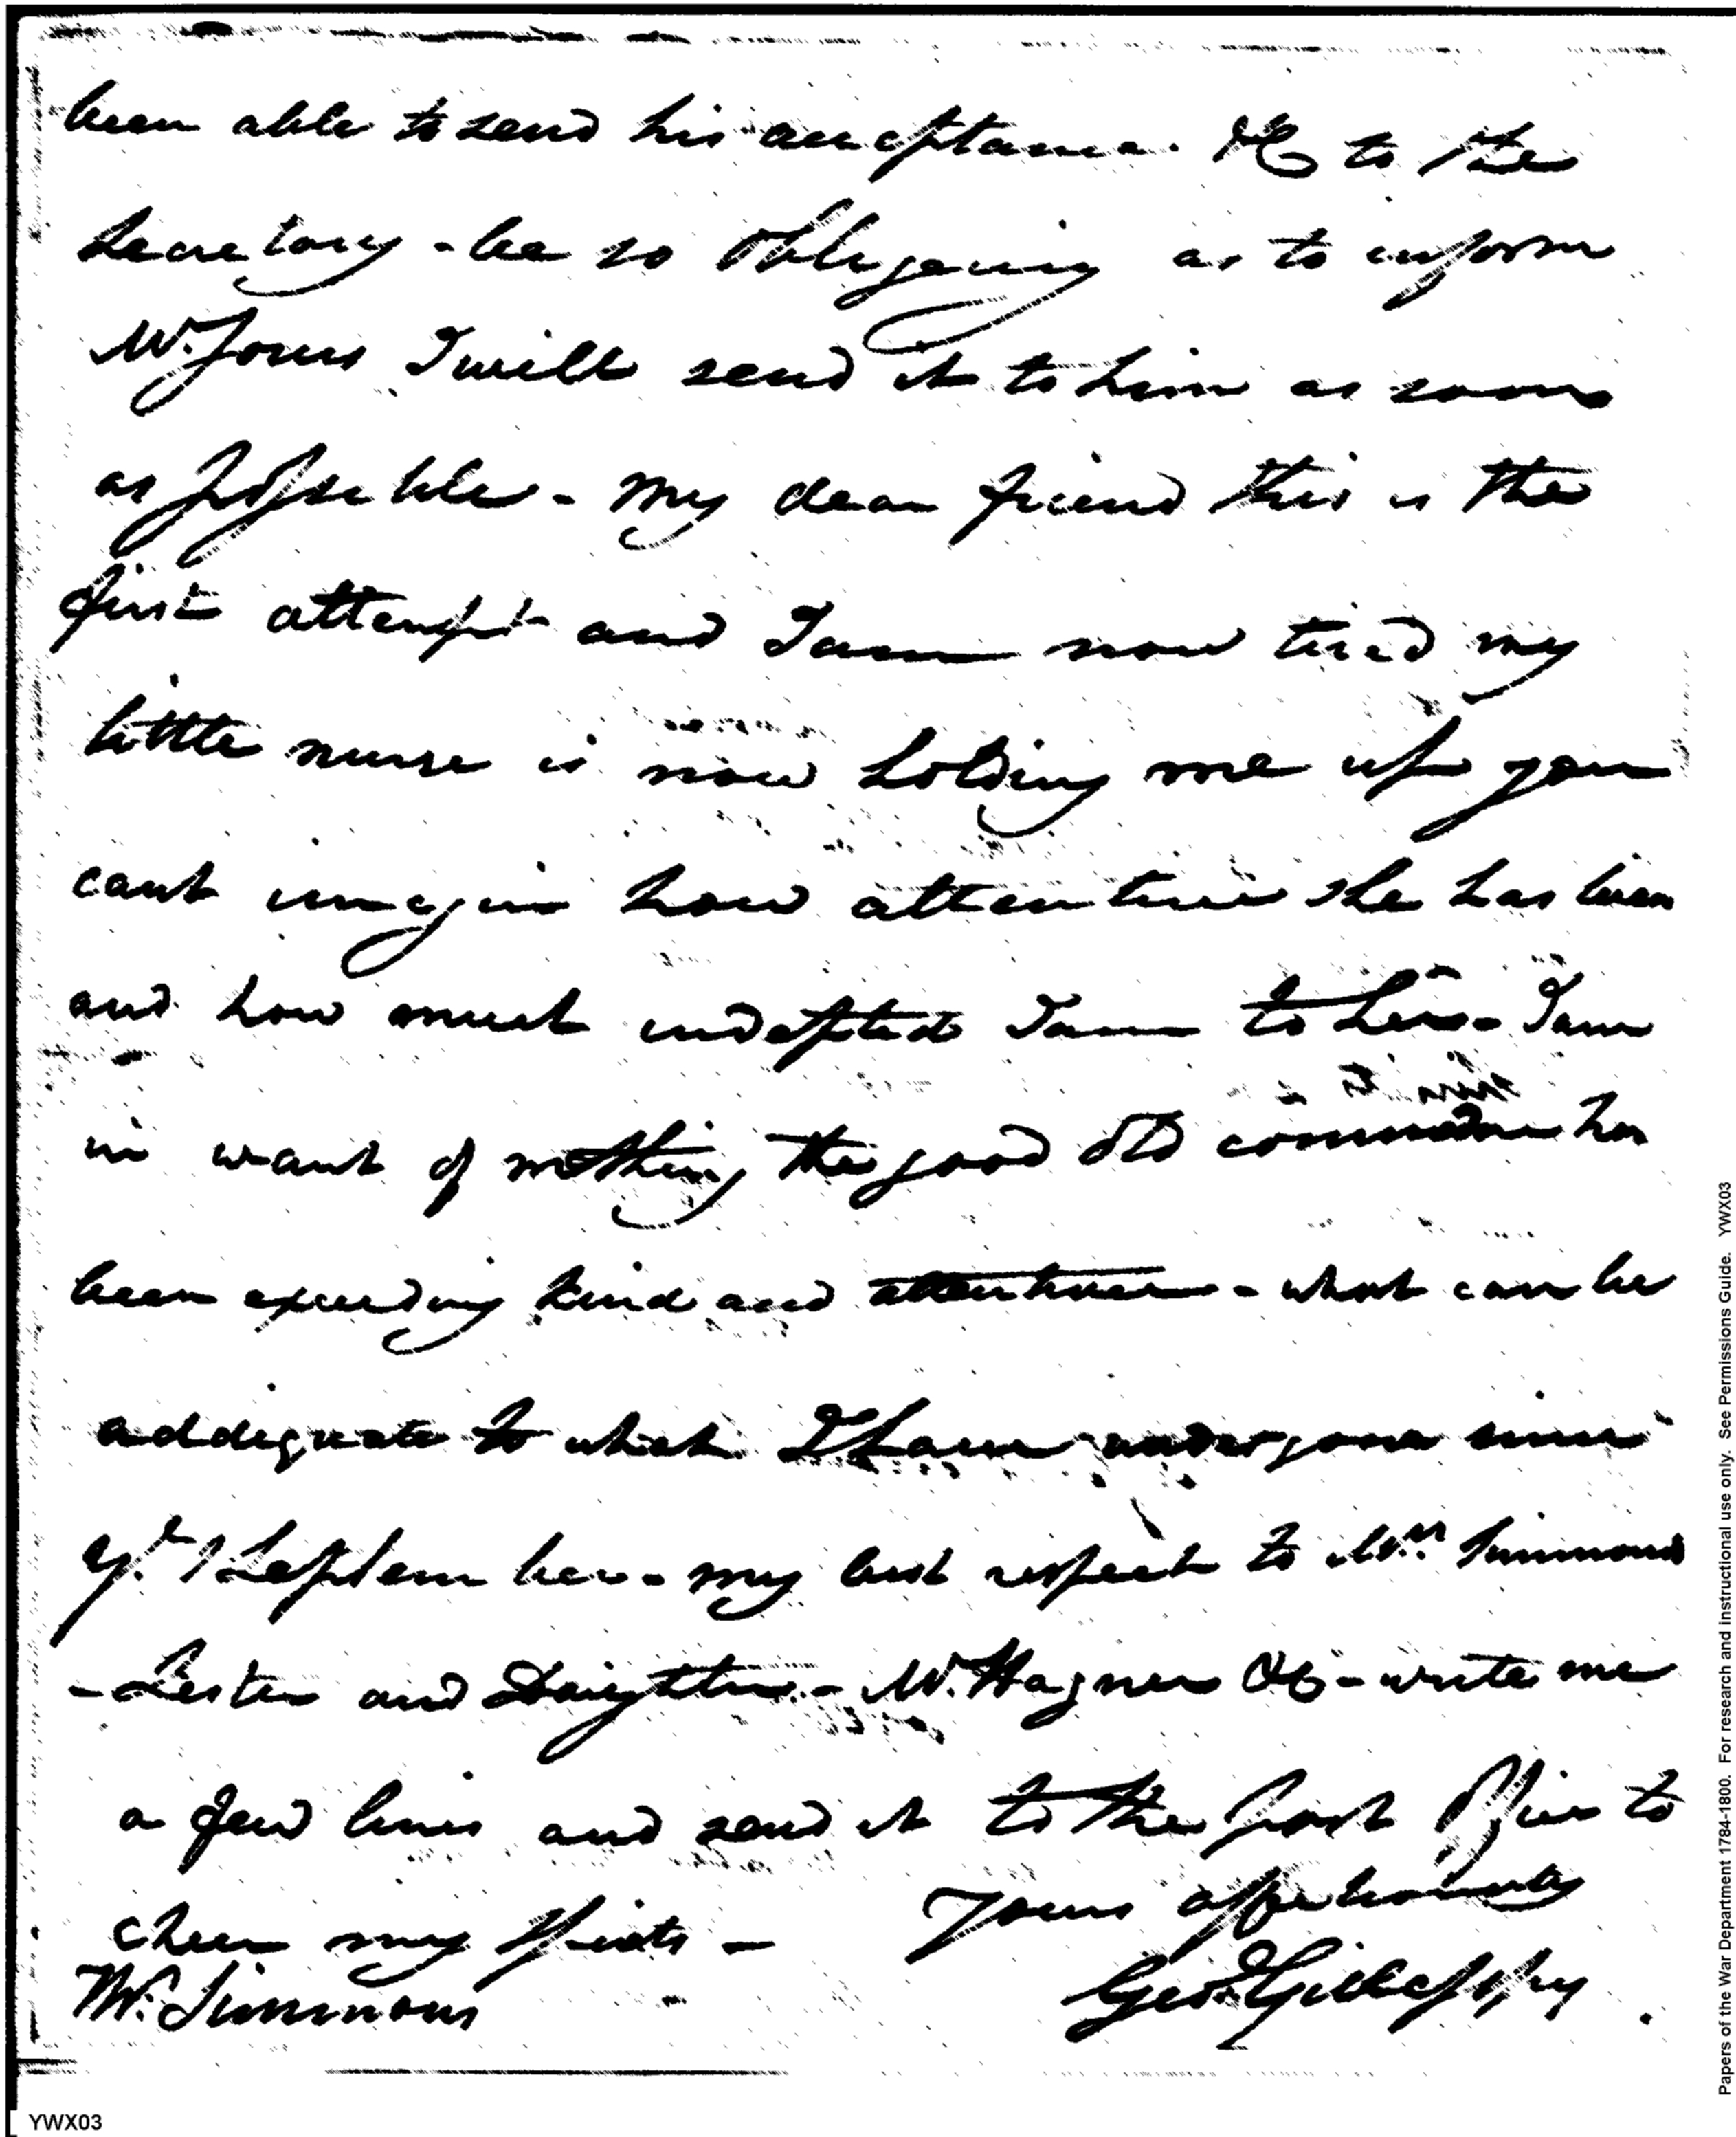 been able to send his acceptance. &C to the
Secretary - be so obligeing as to inform
Mr. Jones I will send it to him as soon
as possible - My dear friend this is the
first attempt and I am now tired my
little nurse is now holding me up you
cant imagin how attentive she has been
and how much indepted I am to her - I am
in want of nothing the good old
been exceeding kind and attentive - what can be
addiquate to what I have undergone since
ye. 1 September - my best respect to Mrs. Simmons
- Sister and Daughter - Mr. Wagner &c - write me
a few lines and send it to the post office to
cheer my spirits - Yours affectionately
W. Simmons Geo. Gillespy
Papers of the War Department 1784-1800. For research and instructional use only. See Permissions Guide. YWX03
YWX03